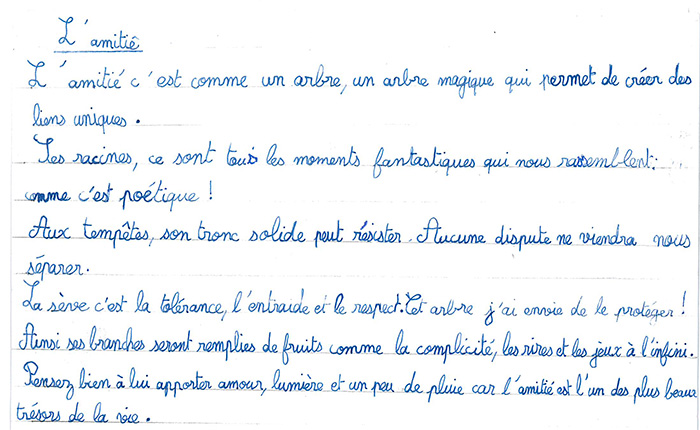 L'amitié
L'amitié c'est comme un arbre, un arbre magique qui permet de créer des
liens uniques.
Les racines, ce sont tous les moments fantastiques qui nous rassemblent:
comme c'est poétique !
Aux tempêtes, son tronc solide peut résister. Aucune dispute ne viendra nous
séparer.
La sève c'est la tolérance, l'entraide et le respect. Cet arbre j'ai envie de le protéger !
Ainsi ses branches seront remplies de fruits comme la complicité, les rires et les jeux à l'infini.
Pensez bien à lui apporter amour, lumière et un peu de pluie car l'amitié est l'un des plus beaux
trésors de la vie.